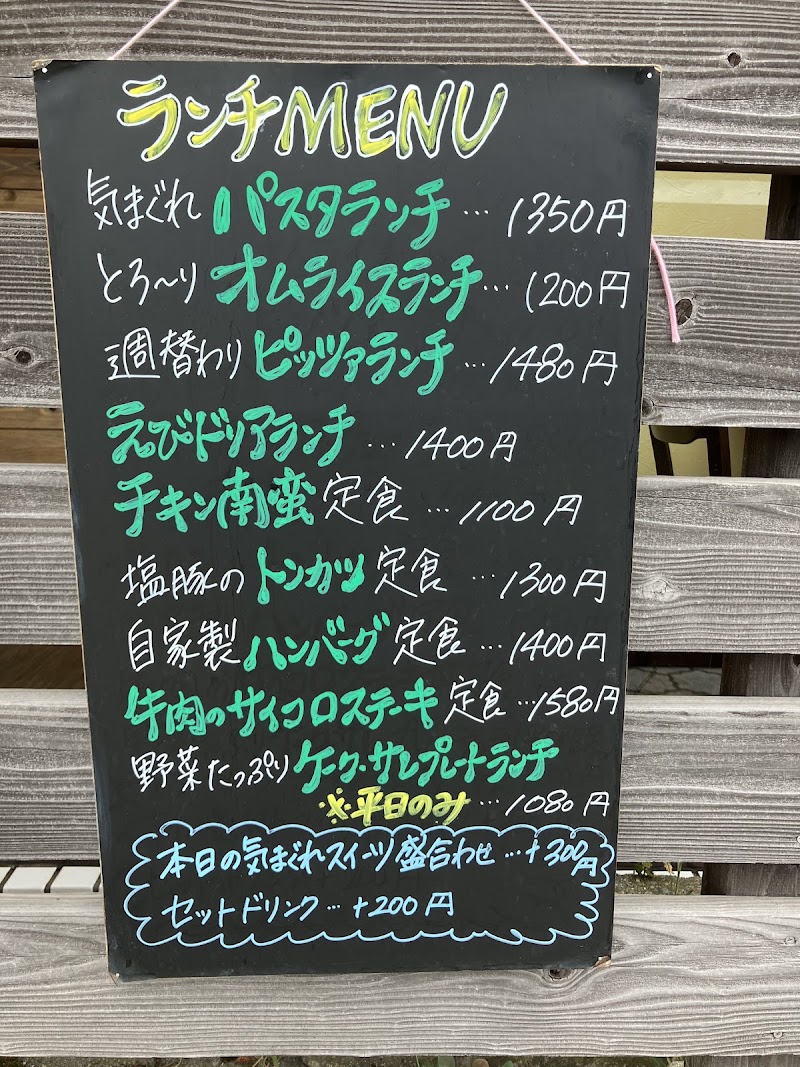 ランチMENU
気まぐれ パスタランチ … 1350円
とろ〜り オムライスランチ … 1200円
週替わり ピッツァランチ … 1480円
えびドリアランチ … 1400円
チキン南蛮定食 … 1100円
塩豚のトンカツ定食 … 1300円
自家製ハンバーグ定食 … 1400円
牛肉のサイコロステーキ定食 … 1580円
野菜たっぷり ケーク・サレプレートランチ
※平日のみ … 1080円
本日の気まぐれスイーツ盛合わせ … +300円
セットドリンク … +200円